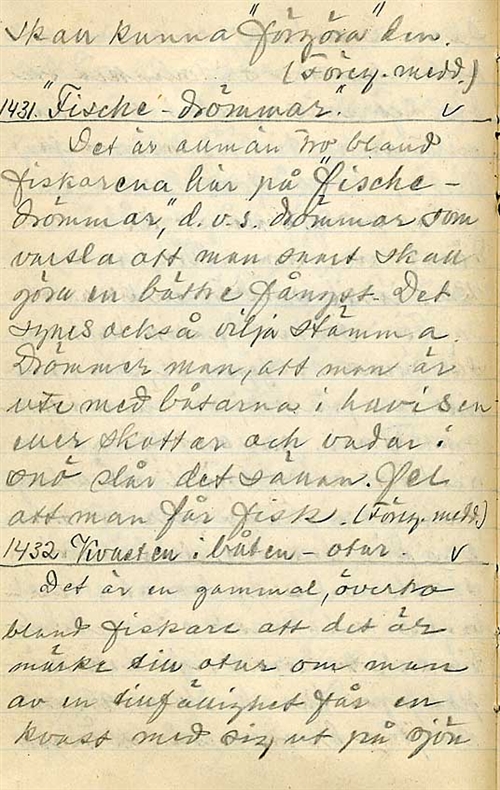 skall kunna "förgöra" den.
(Föreg. medd.)
1431. "Fische-drömmar". v
Det är allmän tro bland
fiskarena här på "fische-
drömmar", d.v.s. drömmar som
varsla att man snart skall
göra en bättre fångst. Det
synes också vilja stämma.
Drömmer man, att man är
ute med båtarna i havisen
eller skottar och vadar i
snö slår det sällan fel
att man får fisk. (Föreg. medd.)
1432 Kvasten i båten - otur. v
Det är en gammal, övertro
bland fiskare att det är
märke till otur om man
av en tillfällighet får en
kvast med sig ut på sjön